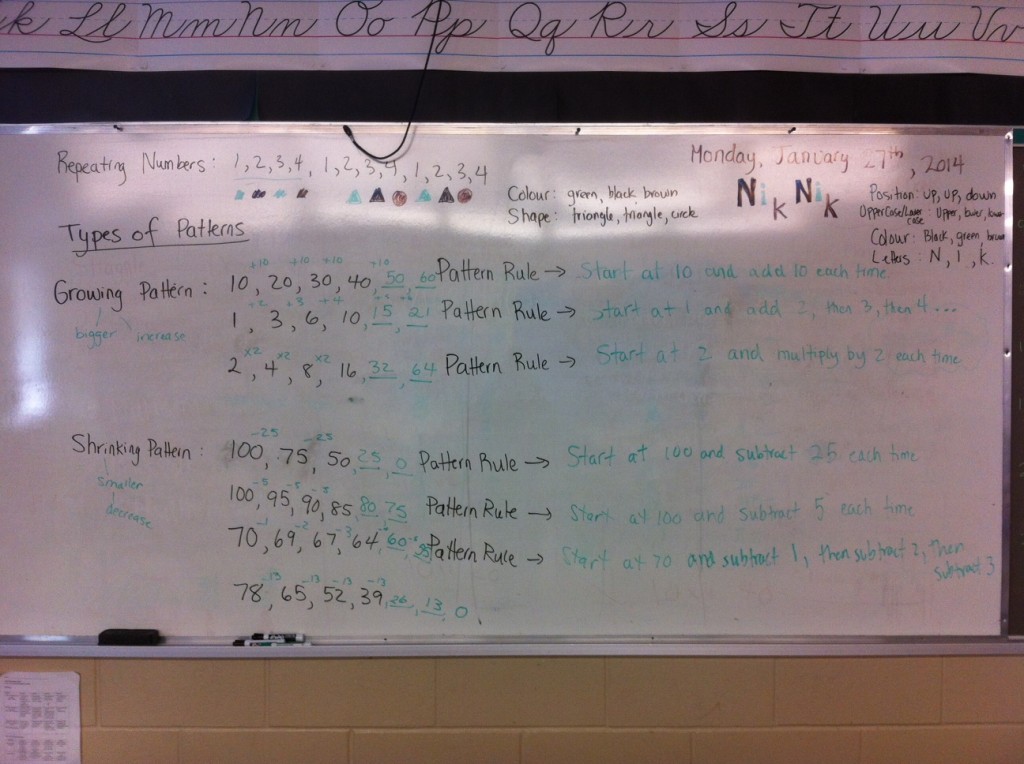 k Ll Mm Nn Oo Pp Qq Rr Ss Tt Uu Vv
Monday, January 27th, 2014
Repeating Numbers: 1,2,3,4, 1,2,3,4, 1,2,3,4
Colour: green, black, brown
Shape: triangle, triangle, circle
Nik Nik
Position: up, up, down
Uppercase/Lower case: Upper, lower, lower
Colour: Black, green, brown
Letters: N, i, k.
Types of Patterns
+10 +10 +10 +10
Growing Pattern: 10, 20, 30, 40, 50, 60 Pattern Rule → Start at 10 and add 10 each time.
bigger increase
+2 +3 +4 +5 +6
1, 3, 6, 10, 15, 21 Pattern Rule → Start at 1 and add 2, then 3, then 4...
x2 x2 x2
2, 4, 8, 16, 32, 64 Pattern Rule → Start at 2 and multiply by 2 each time
-25 -25
Shrinking Pattern: 100, 75, 50, 25, 0 Pattern Rule → Start at 100 and subtract 25 each time
smaller
decrease
-5 -5 -5
100, 95, 90, 85, 80, 75 Pattern Rule → Start at 100 and subtract 5 each time
-1 -2 -3
70, 69, 67, 64, 60, Pattern Rule → Start at 70 and subtract 1, then subtract 2, then subtract 3
-13 -13 -13 -13
78, 65, 52, 39, 26, 13, 0